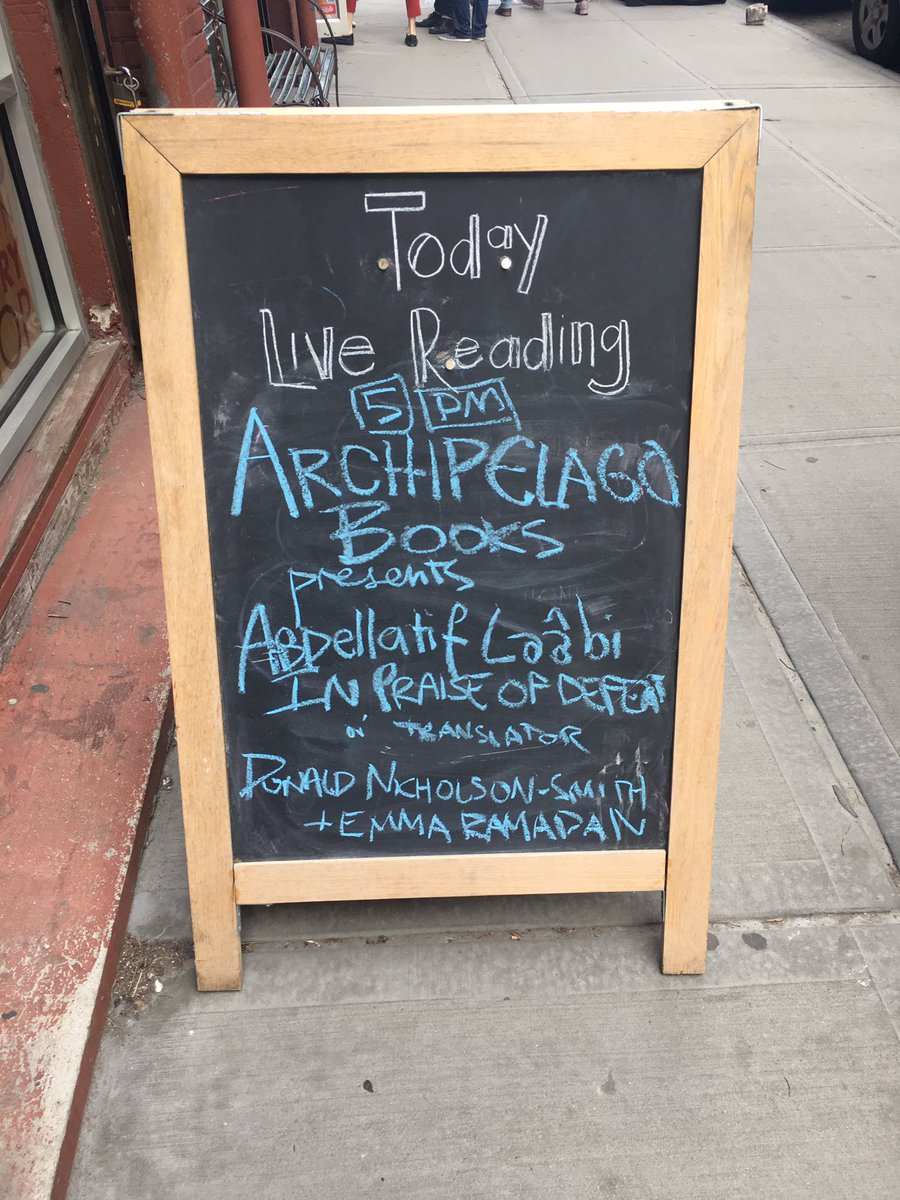 Today
Live Reading
5 PM
ARCHIPELAGO
BOOKS
presents
Abdellatif Laâbi
IN PRAISE OF DEFEAT
TRANSLATOR
DONALD NICHOLSON-SMITH
+ EMMA RAMADAN